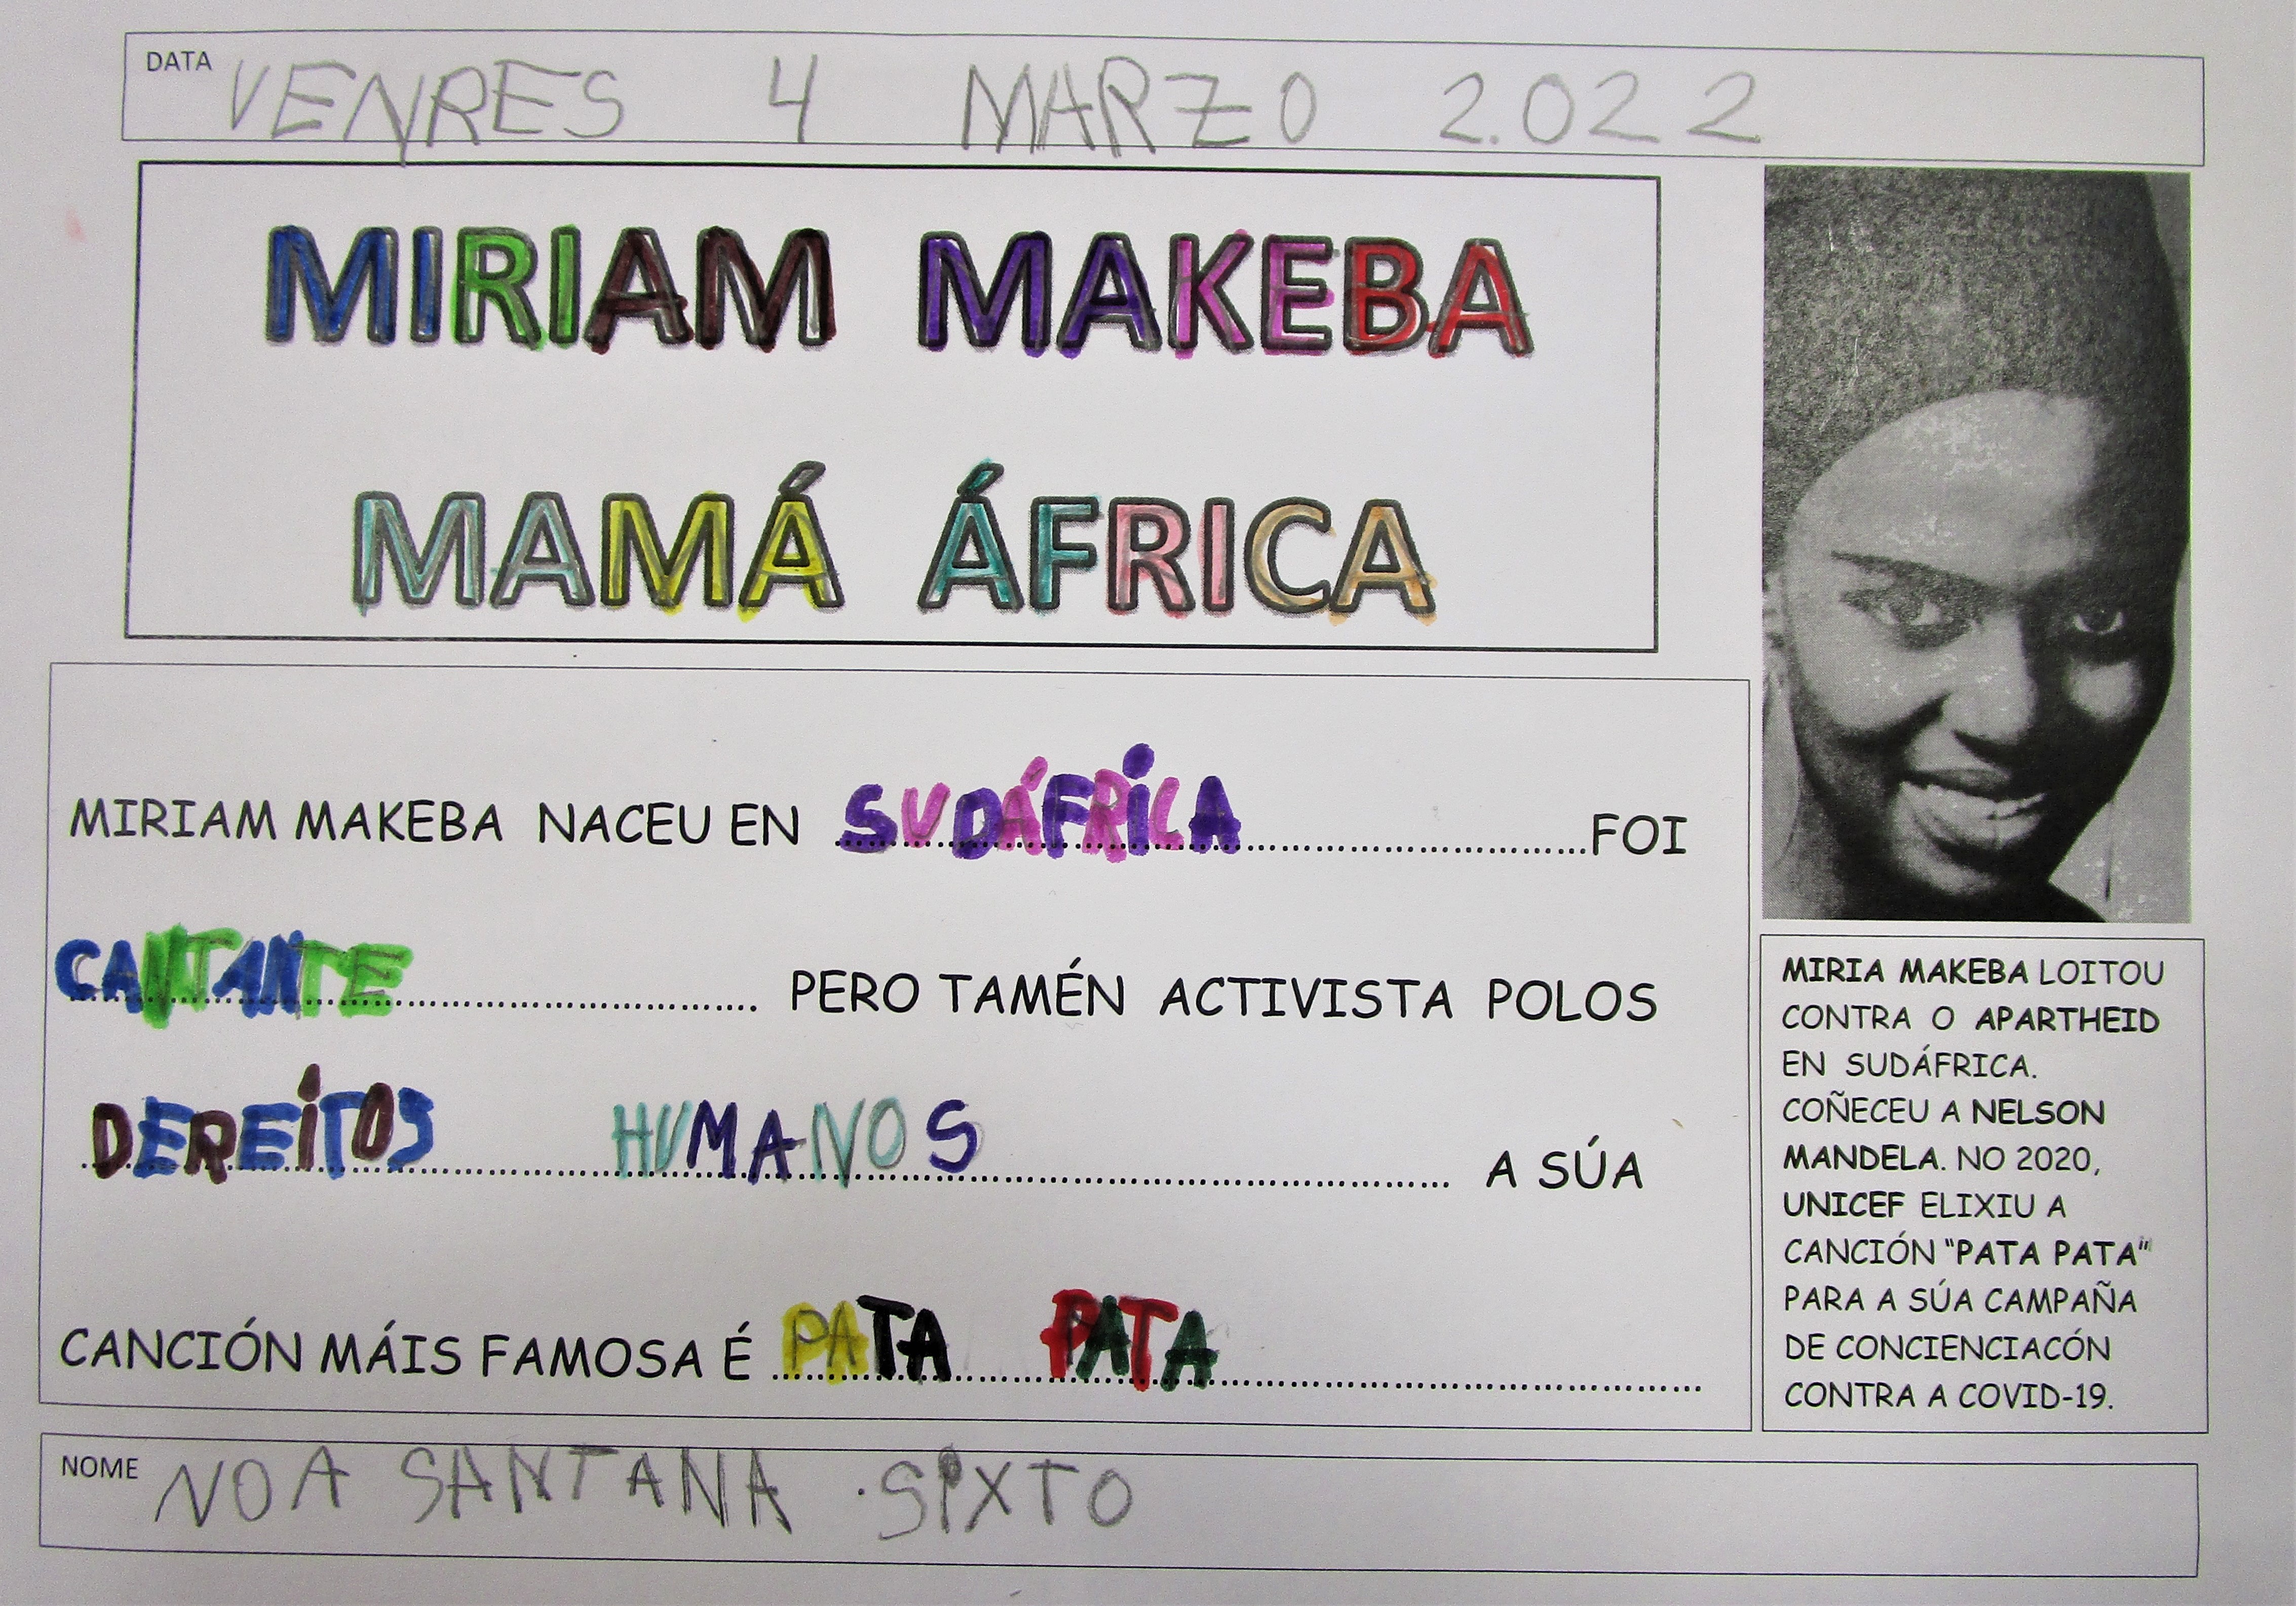 DATA VENRES 4 MARZO 2.022
MIRIAM MAKEBA
MAMÁ ÁFRICA
MIRIAM MAKEBA NACEU EN SUDÁFRICA FOI
CANTANTE PERO TAMÉN ACTIVISTA POLOS
DEREITOS HUMANOS A SÚA
CANCIÓN MÁIS FAMOSA É PATA PATA
MIRIA MAKEBA LOITOU
CONTRA O APARTHEID
EN SUDÁFRICA.
COÑECEU A NELSON
MANDELA. NO 2020,
UNICEF ELIXIU A
CANCIÓN “PATA PATA”
PARA A SÚA CAMPAÑA
DE CONCIENCIACÓN
CONTRA A COVID-19.
NOME NOA SANTANA SIXTO